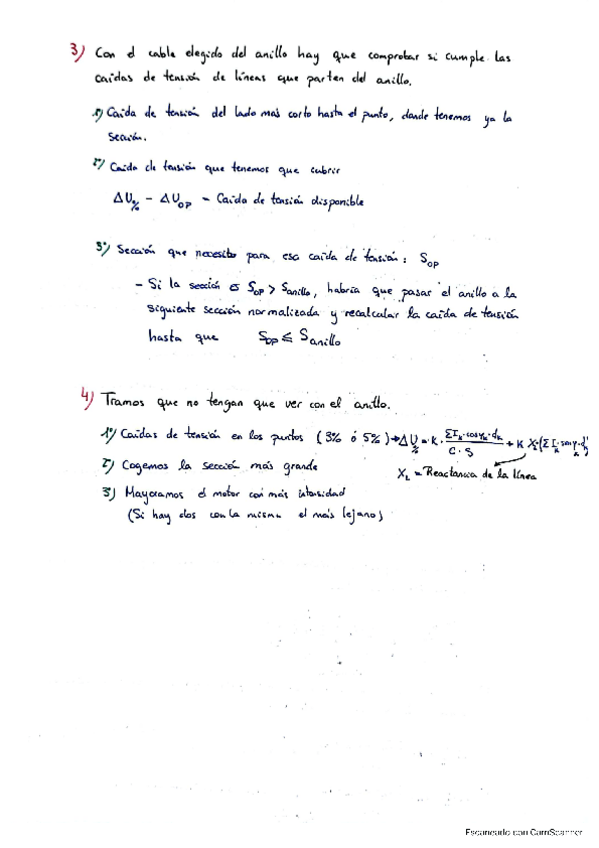 3) Con el cable elegido del anillo hay que comprobar si cumple las
caídas de tensión de líneas que parten del anillo.
1º) Caída de tensión del lado más corto hasta el punto, donde tenemos ya la
sección.
2º) Caída de tensión que tenemos que cubrir
ΔU% - ΔUOP = Caída de tensión disponible
3º) Sección que necesito para esa caída de tensión: SOP
- Si la sección SOP > Sanillo, habría que pasar el anillo a la
siguiente sección normalizada y recalcular la caída de tensión
hasta que SOP ≤ Sanillo
4) Tramos que no tengan que ver con el anillo.
1º) Caídas de tensión en los puntos (3% ó 5%) → ΔU% = K · (ΣIk · cosφk · dk) / (C · S) + K XL (ΣIk · senφ · dk)
XL = Reactancia de la línea
2) Cogemos la sección más grande
3) Mayoramos el motor con más intensidad
(Si hay dos con la misma el más lejano)
Escaneado con CamScanner